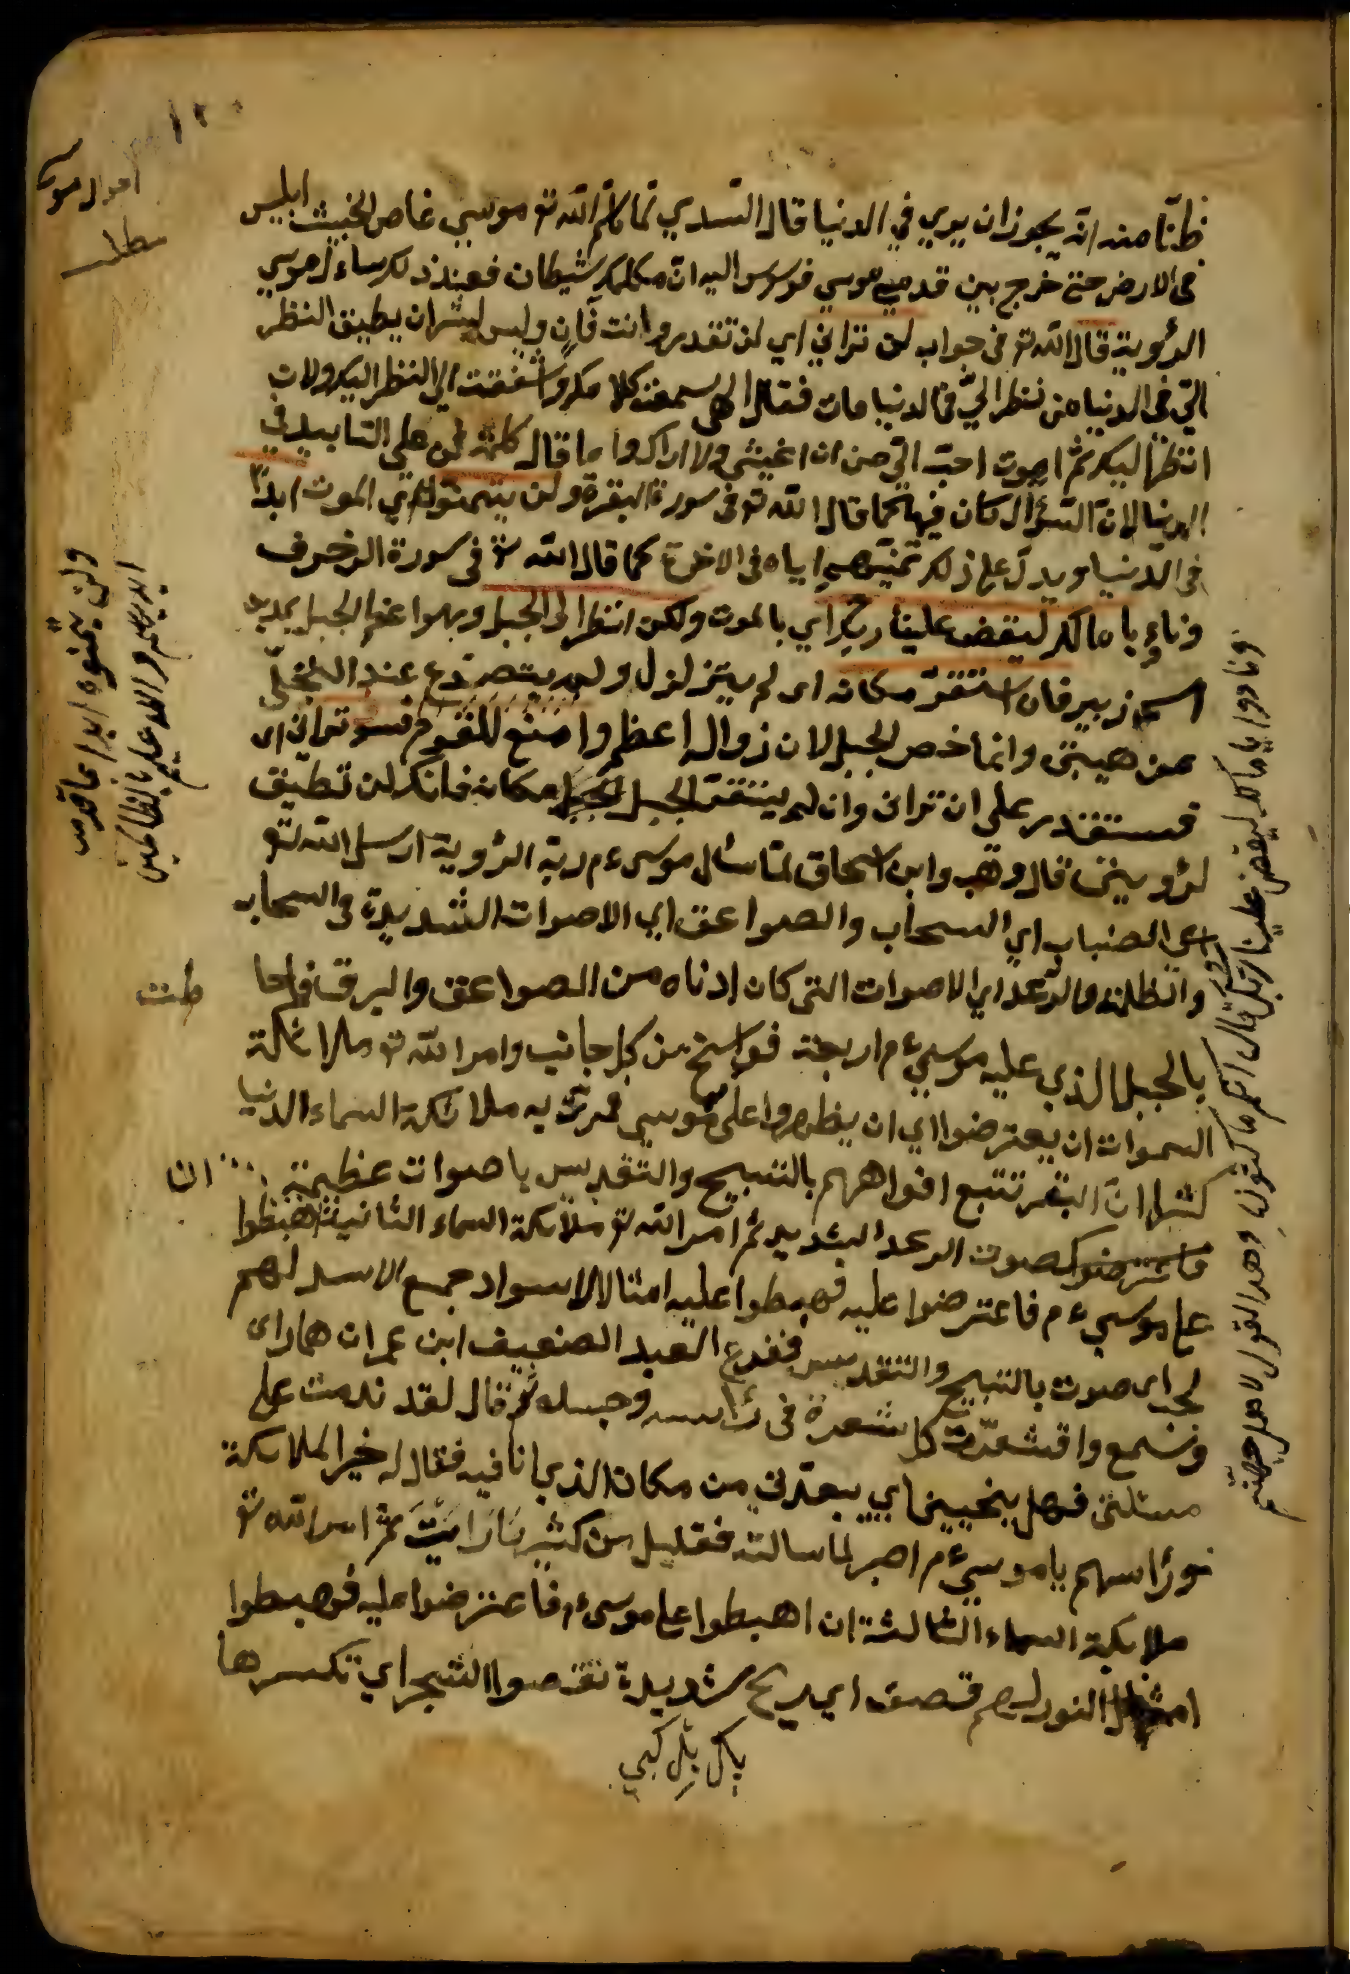 ١٢٠
احوال موسى
مطلب
ظنّا منه انه يجوز ان يرى في الدنيا قال السّدي لمّا كلّم الله تع موسى غاص الخبيث ابليس
فى الارض حتى خرج بين قدمي موسى فوسوس اليه انّ مكلمك شيطان فعند ذلك سأل موسي
الرؤية قال الله تع فى جواب لن تراني اي لن تقدر وانت فانٍ وليس لبشر ان يطيق النظر
اليّ فى الدنيا من ينظر اليّ في الدنيا مات فقال الهي سمعت كلامك واشتقت الى النظر اليك ولان
انظر اليك ثم اموت احبّ اليّ من ان اعيش ولا اراك واما قال كلمة لن على التابيد في
الدنيا لانّ السّؤال كان فيها كما قال الله تع فى سورة البقرة ولن يتمنّوه اي الموت ابدًا
فى الدنيا ويدلّ على ذلك تمنّيهم اياه فى الاخرة كما قال الله تع فى سورة الزخرف
ونادوا يا مالك ليقض علينا ربك اي بالموت ولكن انظر الى الجبل وهو اعظم الجبل بمدين
اسمه زبير فان استقرّ مكانه اى لم يتزلزل ولم يتصدّع عند التجلّي
من هيبتى وانما خص الجبل لان زواله اعظم وامنع للقوم فسوف تراني اى
فستقدر على ان تراني وان لم يستقر الجبل مكانه فانك لن تطيق
لرؤيتى قال وهب وابن اسحاق لمّا سأل موسىءم ربه الرؤية ارسل الله تع
اى الضباب اي السحاب والصواعق اي الاصوات الشديدة فى السحاب
والظلمة والرّعد اي الاصوات التى كان ادناه من الصواعق والبرق فاحا
طت
بالجبل الذي عليه موسىءم اربعة فراسخ من كل جانب وامر الله تع ملائكة
السموات ان يعترضوا اي ان يظهروا على موسي فمرّت به ملائكة السماء الدنيا
كثيران البقر تتبع افواههم بالتسبيح والتقديس باصوات عظيمة
كصوت الرعد الشديد ثم امر الله تع ملائكة السماء الثانية ان اهبطوا
على موسىءم فاعترضوا عليه فهبطوا عليه امثال الاسواد جمع الاسد لهم
لجب اى صوت بالتسبيح والتقديس ففزع العبد الضعيف ابن عمران مما راى
وسمع واقشعرّت كل شعرة فى رأسه وجسده ثم قال لقد ندمت على
مسئلتى فهل ينجيني اي يبعدني من مكان الذي انا فيه فقال له خير الملائكة
ورأسهم يا موسىءم اصبر لما سالته فقليل من كثير ما رايتَ ثم امر الله تع
ملائكة السماء الثالثة ان اهبطوا على موسىءم فاعترضوا عليه فهبطوا
امثال النور لهم قصف اي ريح شديدة تقصوا الشجر اي تكسرها
ولن يتمنوه ابدا بما قدمت
ايديهم والله عليم بالظالمين
ونادوا يا مالك ليقض علينا ربك قال انكم ماكثون وهذا القول لاهل جهنم